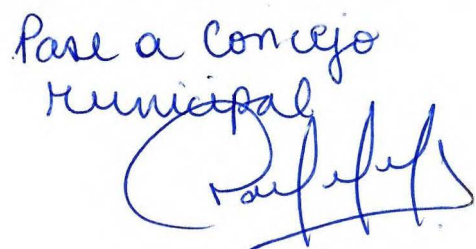 Pase a Concejo
Municipal